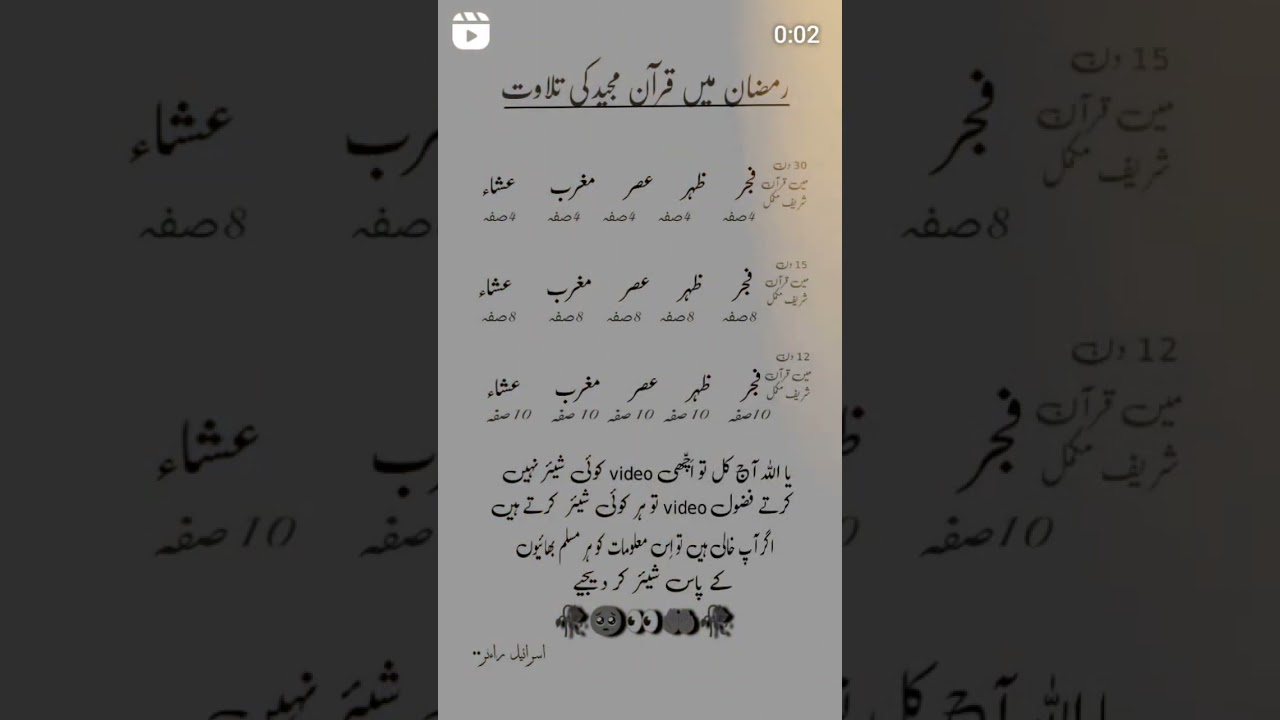 0:02
رمضان میں قرآن مجید کی تلاوت
30 دن
میں قرآن
شریف مکمل
فجر ظہر عصر مغرب عشاء
4صفہ 4صفہ 4صفہ 4صفہ 4صفہ
15 دن
میں قرآن
شریف مکمل
فجر ظہر عصر مغرب عشاء
8صفہ 8صفہ 8صفہ 8صفہ 8صفہ
12 دن
میں قرآن
شریف مکمل
فجر ظہر عصر مغرب عشاء
10صفہ 10صفہ 10صفہ 10صفہ 10صفہ
یا اللہ آج کل تو اچّھی video کوئی شیئر نہیں
کرتے فضول video تو ہر کوئی شیئر کرتے ہیں
اگر آپ خالی ہیں تو اِس معلومات کو ہر مسلم بھائیوں
کے پاس شیئر کر دیجیے
اسرائیل